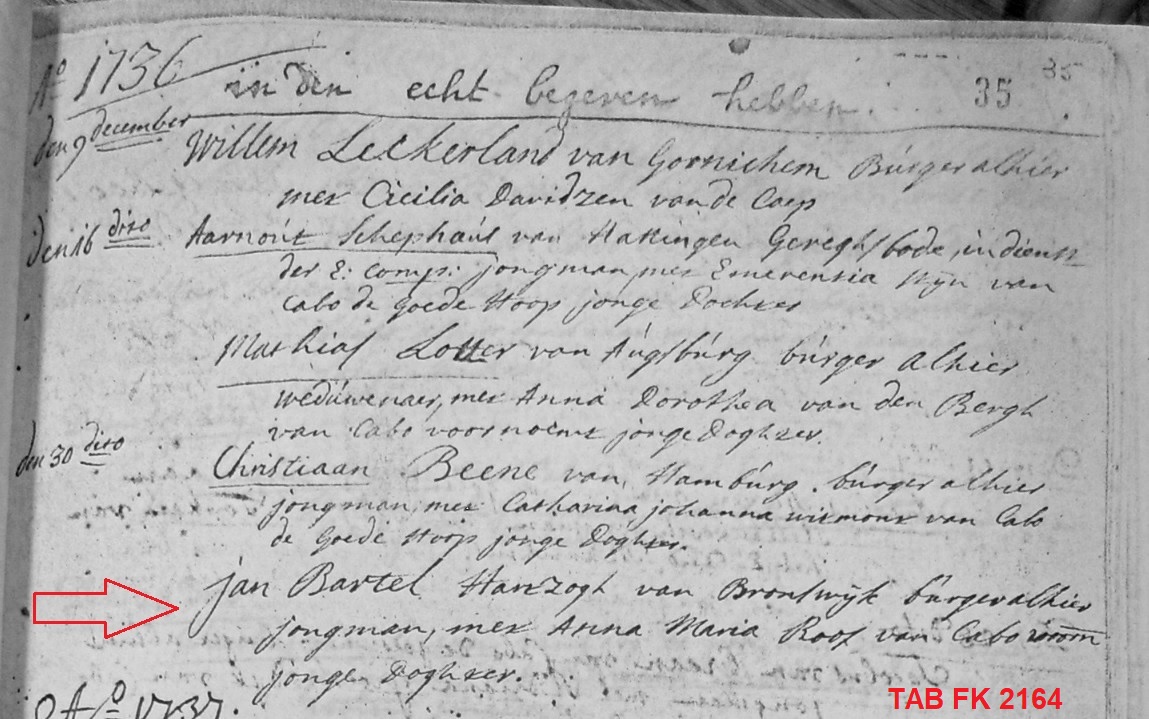 35
Aº 1736 in den echt begeven hebben. 35
den 9 december Willem Leckerland van Gornichem Búrger alhier
met Cicilia Davidzen van de Caep
den 16 dito Aarnoút Schepháús van Hattingen Geregts bode, in dienst
der E: Comp: jongman, met Emerentia Nÿn van
Cabo de Goede Hoop jonge Dochter
Mathias Lotter van Aúgsbúrg búrger alhier
wedúwenaer, met Anna Dorothea van den Bergh
van Cabo voornoemt jonge Doghter.
den 30 dito Christiaan Beene van Hambúrg. búrger alhier
jongman, met Catharina Johanna witmont van Cabo
de Goede Hoop jonge Doghter.
Jan Bartel Hartzogh van Bronswÿk búrger alhier
jongman, met Anna Maria Roos van Cabo voorn
jonge Doghter.
Aº 1737.
TAB FK 2164